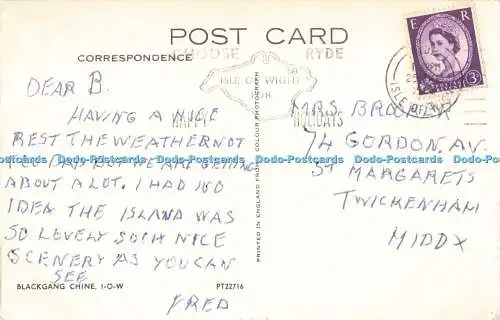 POST CARD
CORRESPONDENCE
CHOOSE RYDE
ISLE OF WIGHT
FOR
HAPPY HOLIDAYS
E R
3D
ISLE OF WIGHT
DEAR B.
HAVING A NICE
REST THE WEATHER NOT
TOO BAD BUT WE ARE GETTING
ABOUT A LOT. I HAD NO
IDEA THE ISLAND WAS
SO LOVELY SUCH NICE
SCENERY AS YOU CAN
SEE
FRED
MRS BROOKER
74 GORDON. AV.
ST MARGARETS
TWICKENHAM
MIDDX
PRINTED IN ENGLAND FROM A COLOUR PHOTOGRAPH
BLACKGANG CHINE, I-O-W PT22716
Dodo-Postcards Dodo-Postcards Dodo-Postcards Dodo-Postcards Dodo-Postcards Dodo-Postcards